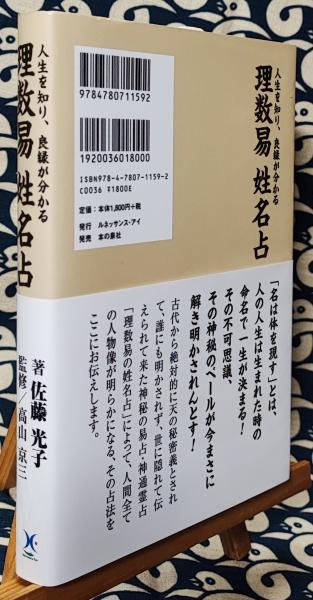 人生を知り、良縁が分かる
理数易姓名占
9784780711592
1920036018000
ISBN978-4-7807-1159-2
C0036 ¥1800E
定価：本体1,800円＋税
発行 ルネッサンス・アイ
発売 本の泉社
「名は体を現す」とは、
人の人生は生まれた時の
命名で一生が決まる！
その不可思議、
その神秘のベールが今まさに
解き明かされんとす！
古代から絶対的に天の秘密義とされ
て、誰にも明かされず、世に隠れて伝
えられて来た神秘の易占・神通霊占
「理数易の姓名占」によって、人間全て
の人物像が明らかになる、その占法を
ここにお伝えします。
人生を知り、良縁が分かる
理数易姓名占
著 佐藤光子
監修／高山京三